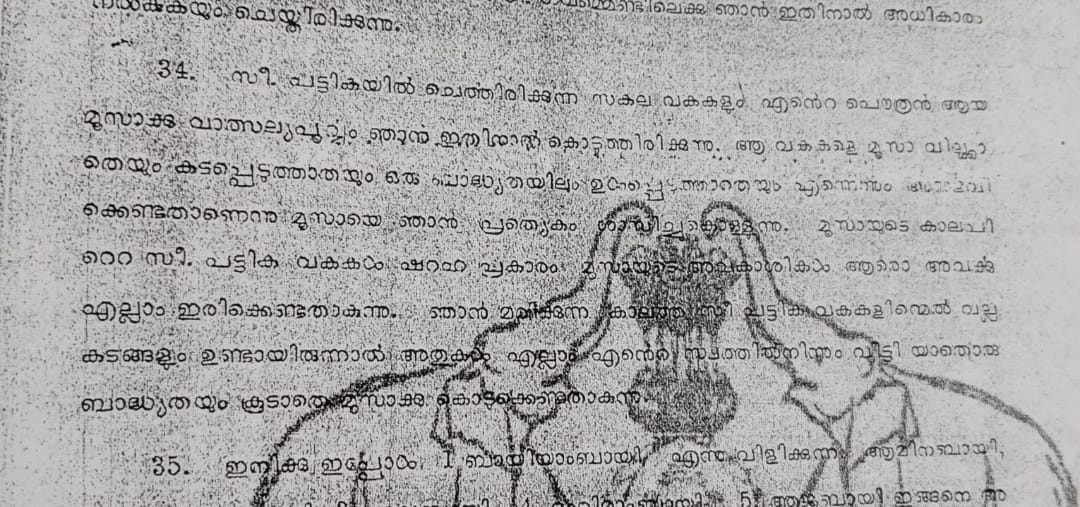 നൽകുകയും ചെയ്തിരിക്കുന്നു.
ഞാൻ ഇതിനാൽ അധികാരം
34. സീ. പട്ടികയിൽ ചെത്തിരിക്കുന്ന സകല വകകളും എൻെറ പൌത്രൻ ആയ
മൂസാക്കു വാത്സല്യപൂർവ്വം ഞാൻ ഇതിനാൽ കൊടുത്തിരിക്കുന്നു. ആ വകകളെ മൂസാ വില്ക്കാ
തെയും കടപ്പെടുത്താതയും ഒരു ബാദ്ധ്യതയിലും ഉൾപ്പെടുത്താതെയും എന്നെന്നും
ക്കെണ്ടതാണെന്നു മൂസായെ ഞാൻ പ്രത്യെകം ശാസിച്ചുകൊള്ളുന്നു. മൂസായുടെ കാലപി
റെറ സീ. പട്ടിക വകകൾ ഷറഹ പ്രകാരം മൂസായുടെ അവകാശികൾ ആരൊ അവക്കു
എല്ലാം ഇരിക്കെണ്ടതാകുന്നു. ഞാൻ മരിക്കുന്ന കാലത്തു സീ പട്ടിക വകകളിന്മെൽ വല്ല
കടങ്ങളും ഉണ്ടായിരുന്നാൽ അതുകൾ എല്ലാം എൻെറ സ്വത്തിൽനിന്നും വീട്ടി യാതൊരു
ബാദ്ധ്യതയും കൂടാതെ മൂസാക്കു കൊടുക്കെണ്ടതാകുന്നു.
35. ഇനിക്കു ഇപ്പോൾ 1 എന്നു വിളിക്കുന്ന ആമിനബായി,
5, ഇങ്ങനെ അ